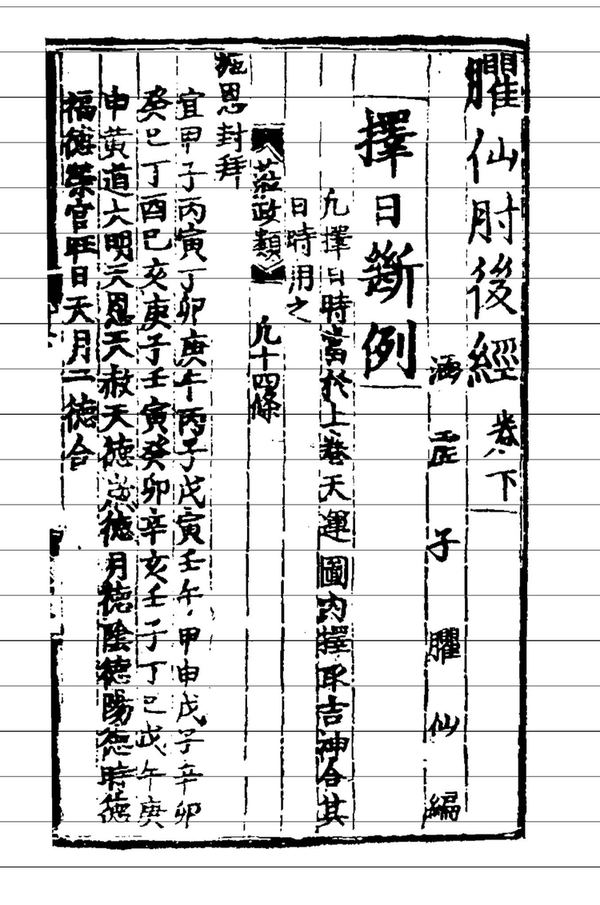 臞仙肘後經卷下
涵虛子臞仙編
擇日斷例
凡擇日時當於上卷天運圖內擇取吉神合其
日時用之
蒞政類 凡十四條
施恩封拜
宜甲子丙寅丁卯庚午丙子戊寅壬午甲申戊子辛卯
癸巳丁酉己亥庚子壬寅癸卯辛亥壬子丁巳戊午庚
申黃道大明天恩天赦天德 德月德陰德陽德時德
福德榮官旺日天月二德合